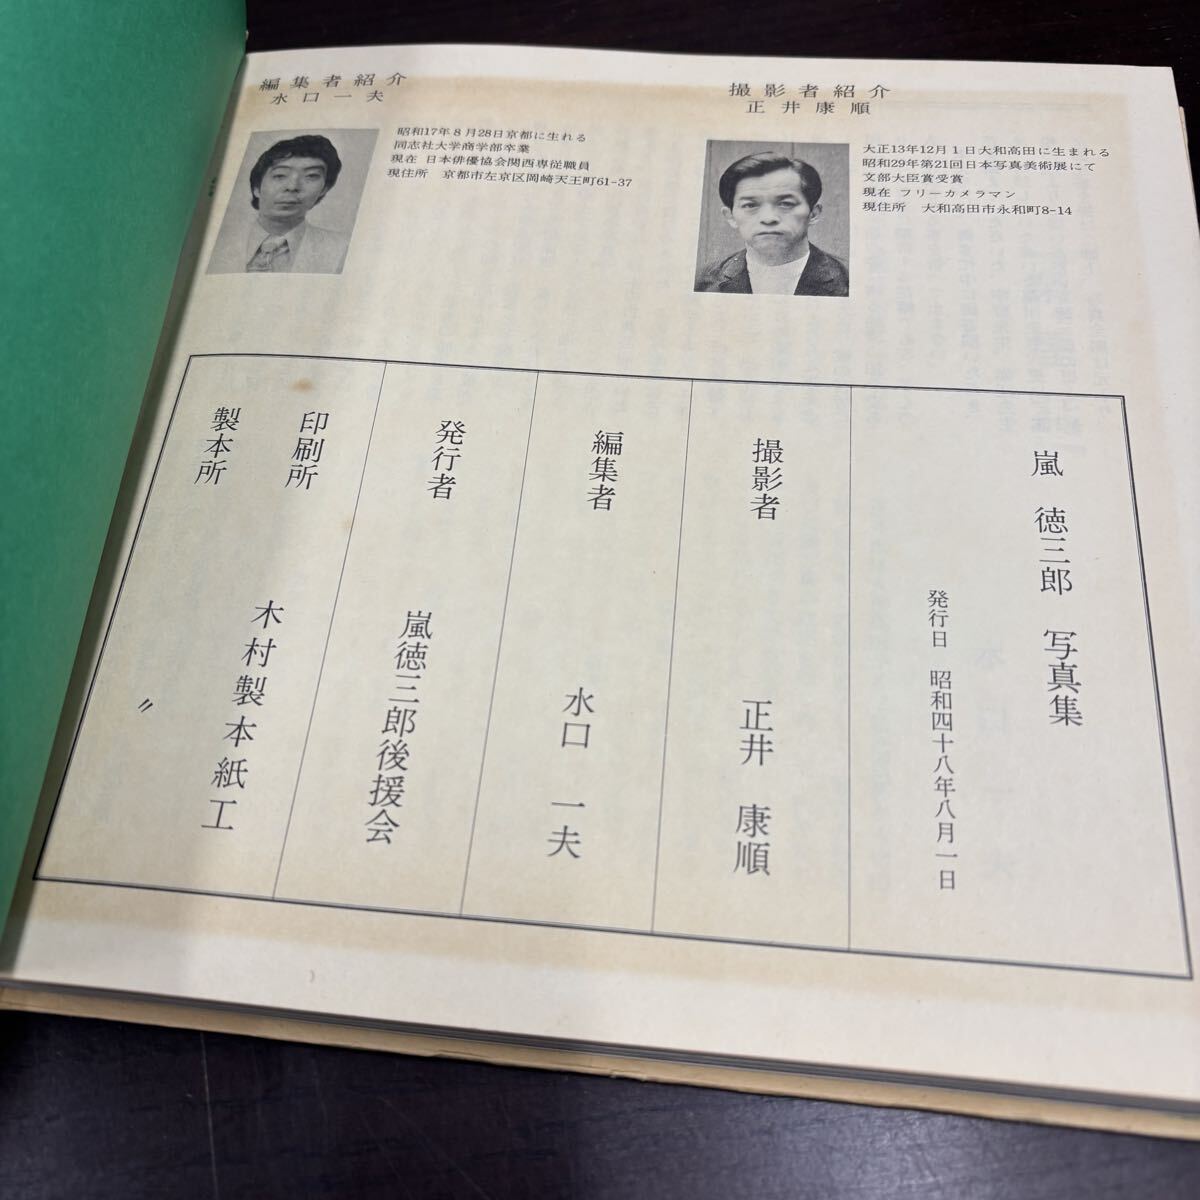 撮影者紹介
正井康順
大正13年12月1日大和高田に生まれる
昭和29年第21回日本写真美術展にて
文部大臣賞受賞
現在 フリーカメラマン
現住所 大和高田市永和町8-14
編集者紹介
水口一夫
昭和17年8月28日京都に生れる
同志社大学商学部卒業
現在 日本俳優協会関西専従職員
現住所 京都市左京区岡崎天王町61-37
嵐 徳三郎 写真集
発行日 昭和四十八年八月一日
撮影者 正井 康順
編集者 水口 一夫
発行者 嵐徳三郎後援会
印刷所 木村製本紙工
製本所 〃